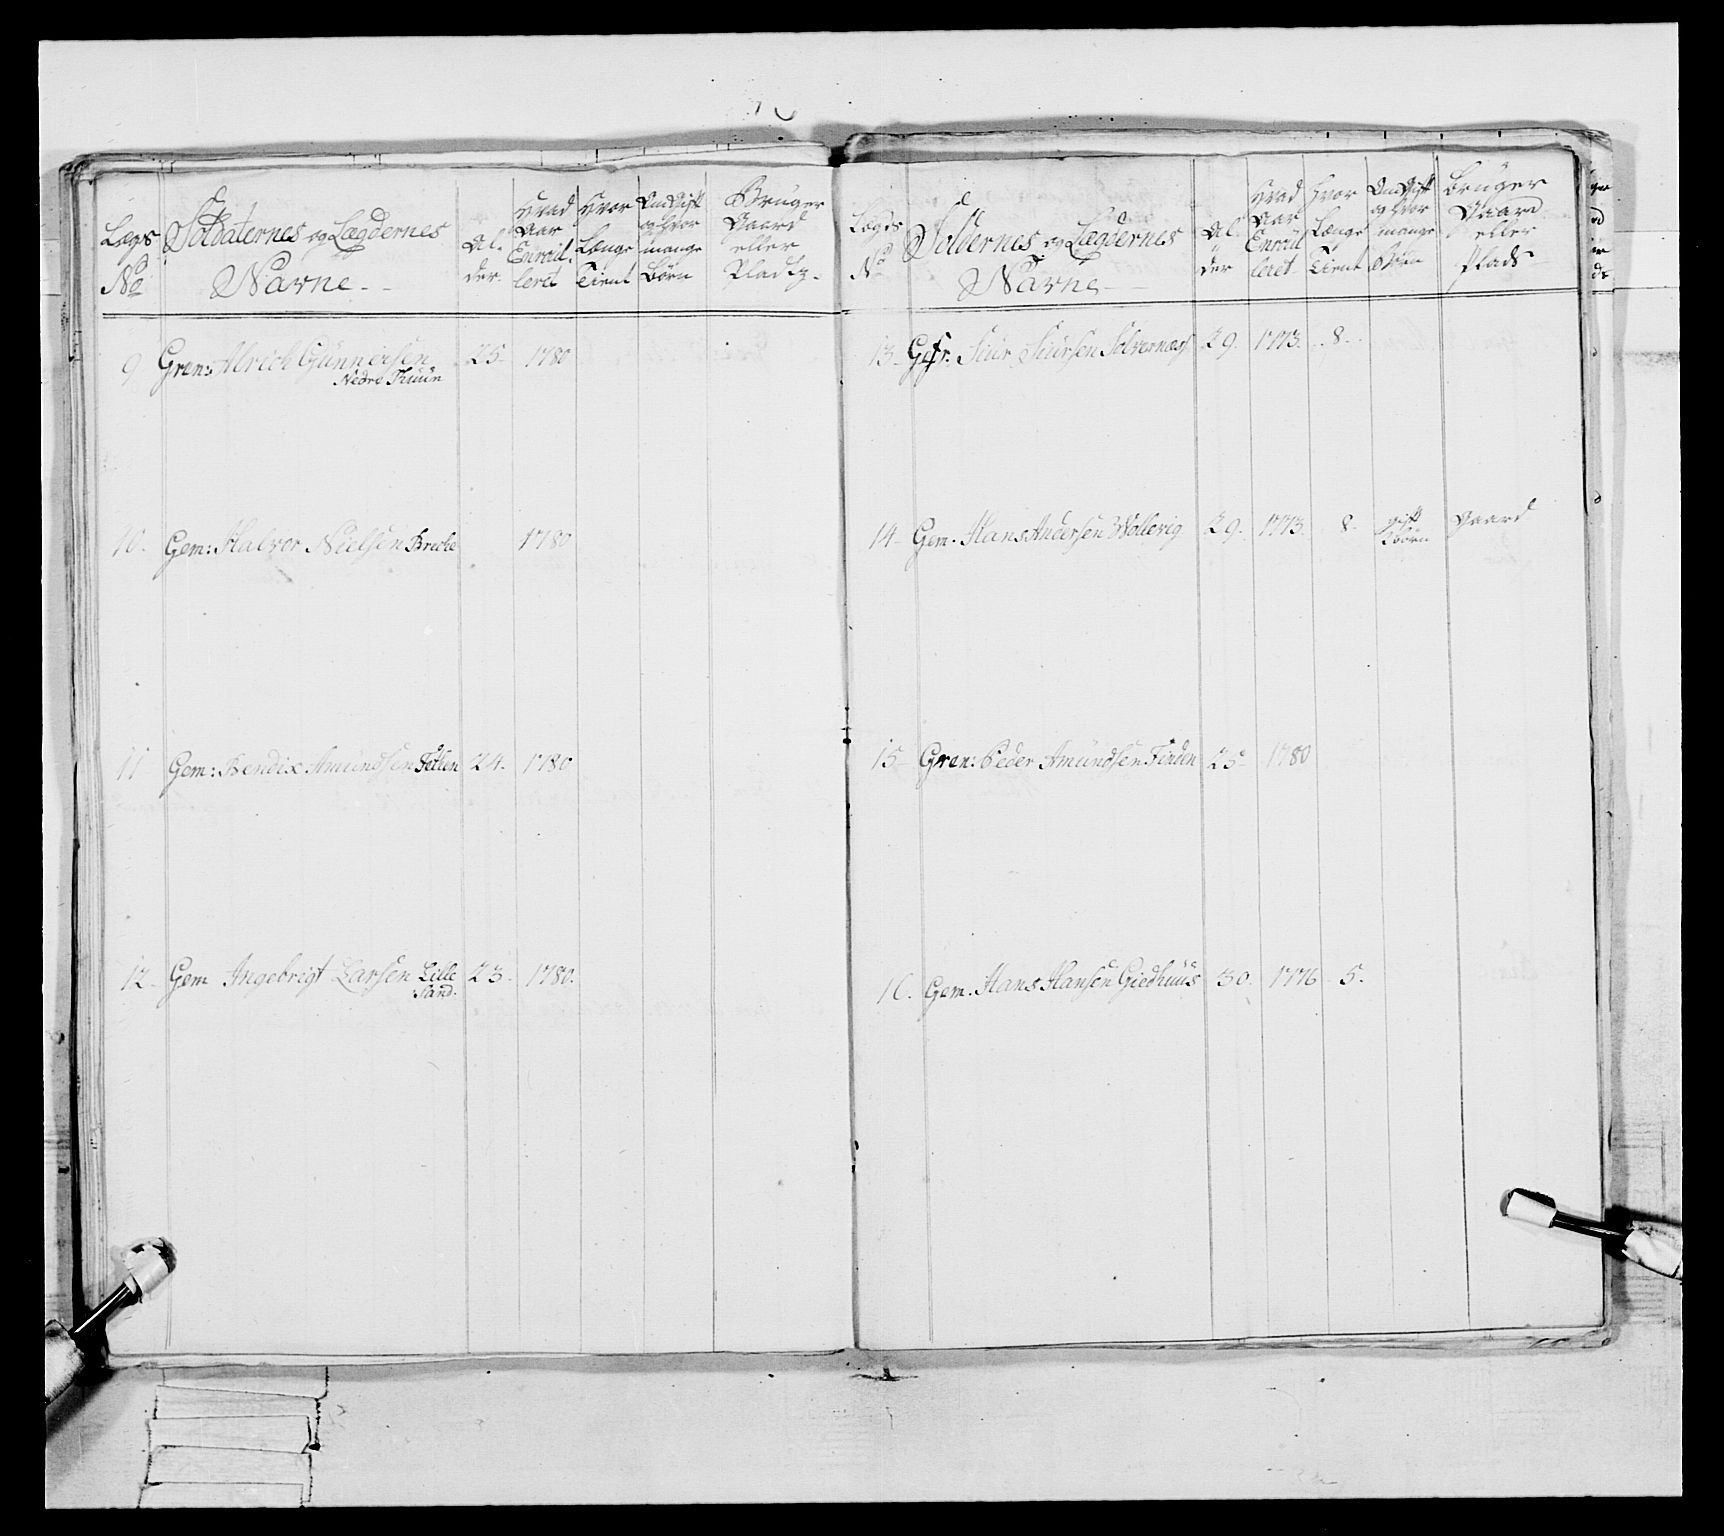 Lægs No
Soldaternes og Lægdernes Navne
Alder
Hvad Aar Enroulleret
Hvor Længe Tient
Om Gift og Hvor mange Børn
Bruger Gaard eller Pladtz
9. Gren: Alrich Günnersen 25. 1780
Nedre Thuün
10. Gem: Halvor Nielsen Breche 1780
11 Gem: Bendix Amundsen Fetten 24. 1780
12. Gem Ingebrigt Larsen Lille 23. 1780.
Sand.
Lægds No
Soldernes og Lægdernes Navne
Alder
Hvad Aar Enroulleret
Hvor Længe Tient
Om Gift og Hvor mange Børn
Bruger Gaard eller Plads
13. Gefr. Siur Siursen Solvernæs 29. 1773. 8.
14. Gem. Hans Andersen Wollevig 29. 1773. 8. gift Gaard
børn
15. Gren: Peder Amundsen Finden 25. 1780
16. Gem. Hans Hansen Giedhuus 30. 1776 5.